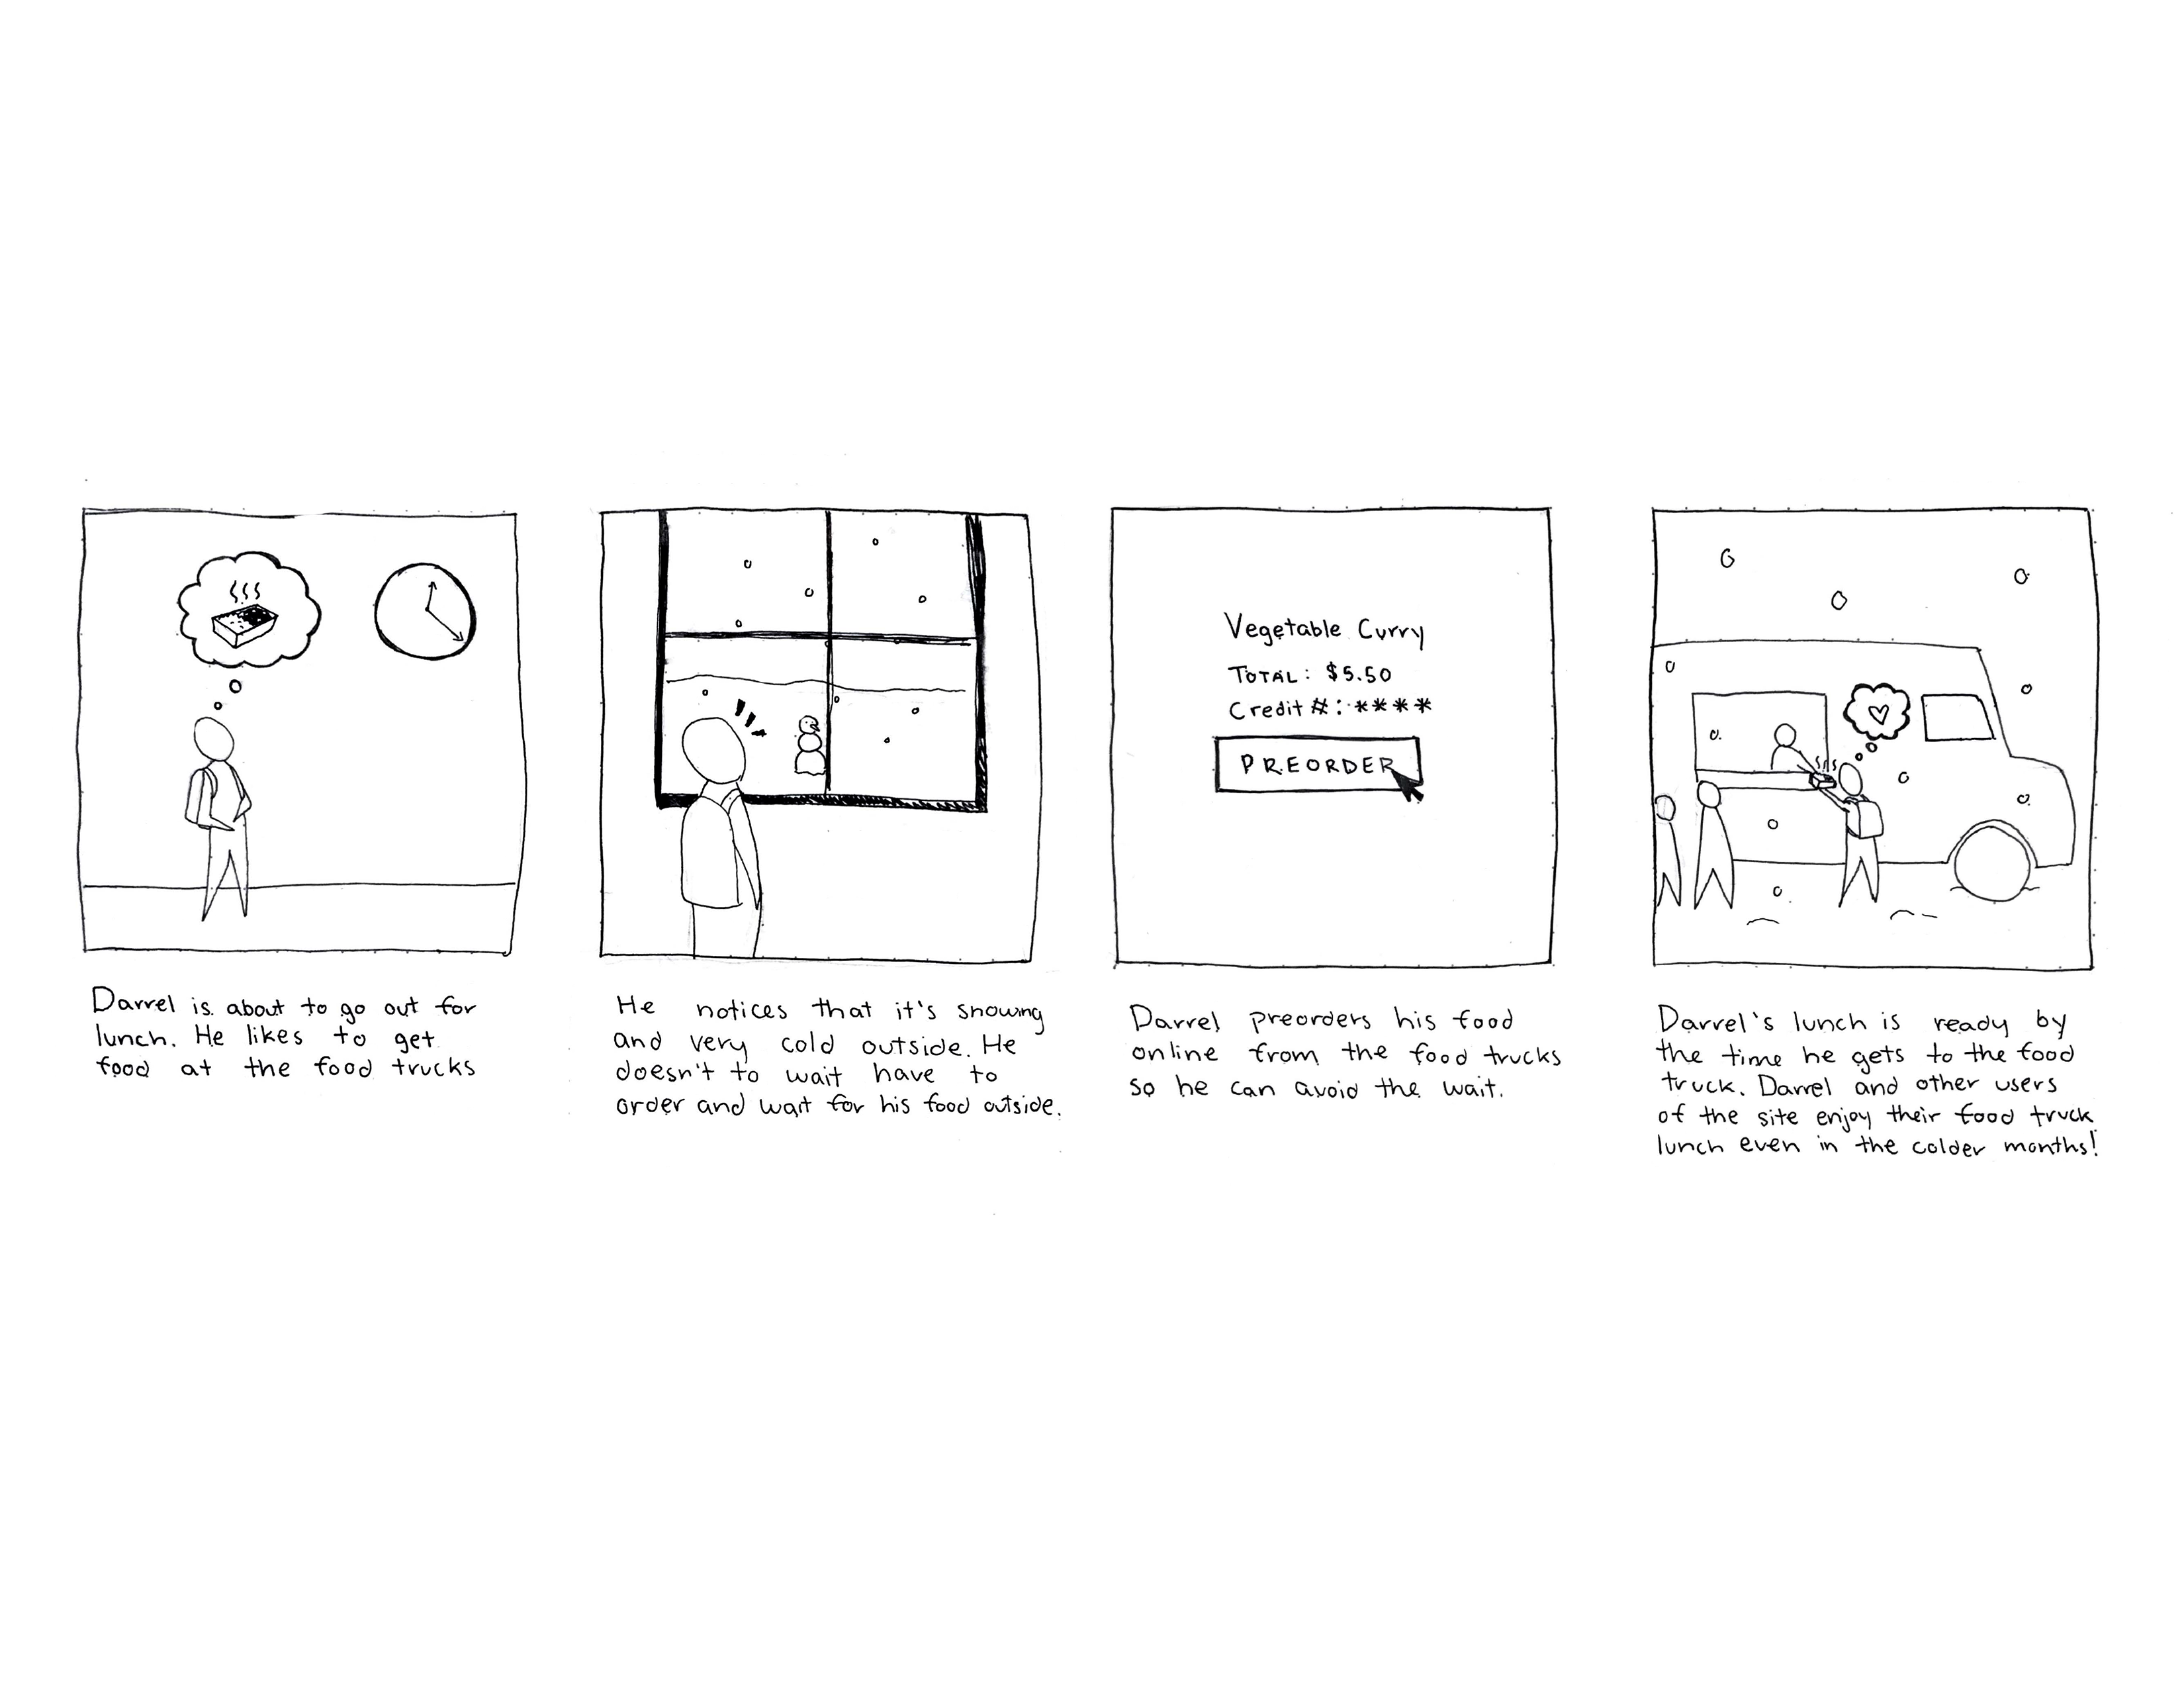 Vegetable Curry
TOTAL: $5.50
Credit #: ****
PREORDER
Darrel is about to go out for
lunch. He likes to get
food at the food trucks
He notices that it's snowing
and very cold outside. He
doesn't to wait have to
order and wait for his food outside.
Darrel preorders his food
online from the food trucks
so he can avoid the wait.
Darrel's lunch is ready by
the time he gets to the food
truck. Darrel and other users
of the site enjoy their food truck
lunch even in the colder months!